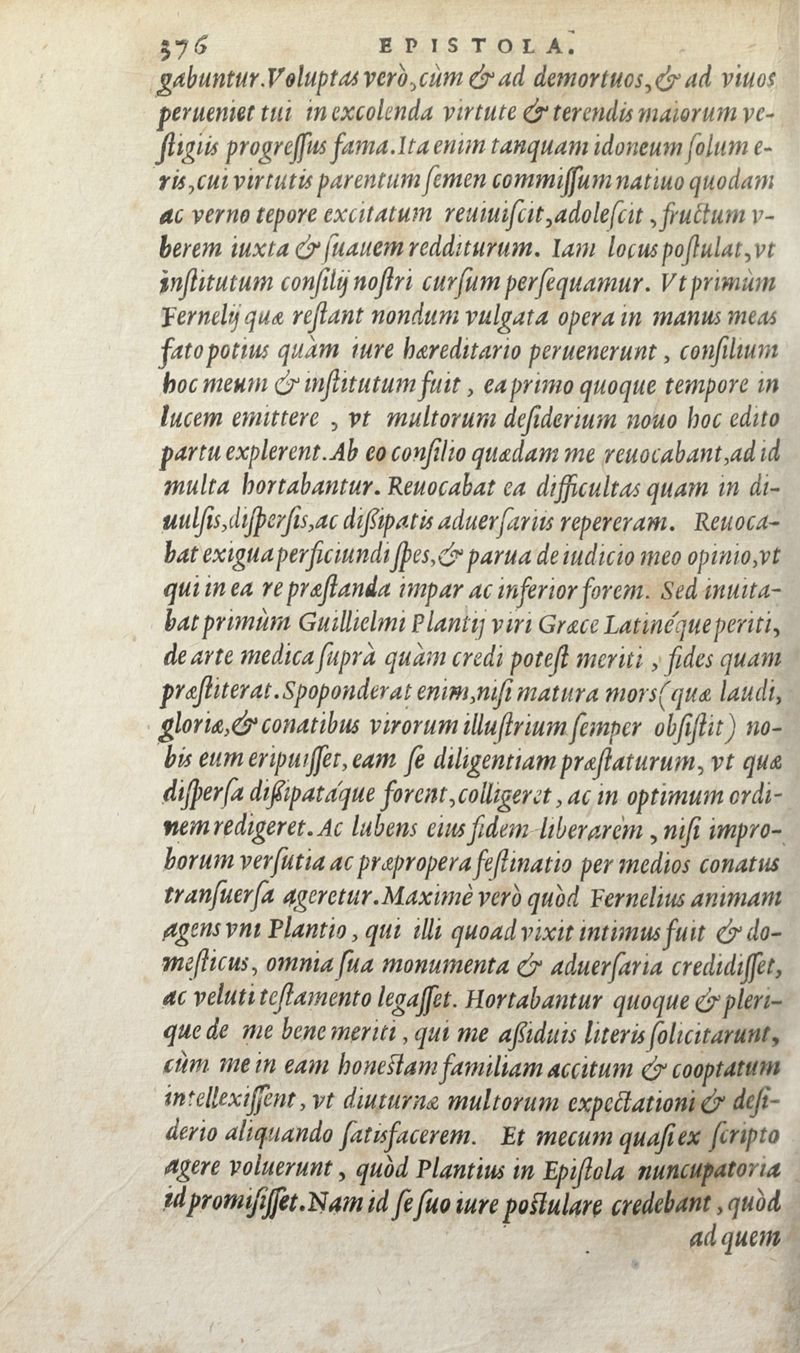 376 EPISTOLA.
gabuntur.Voluptas verò,cùm & ad demortuos,& ad viuos
perueniet tui in excolenda virtute & terendis maiorum ve-
ſtigiis progreſſus fama.Ita enim tanquam idoneum ſolum e-
ris,cui virtutis parentum ſemen commiſſum natiuo quodam
ac verno tepore excitatum reuiuiſcit,adoleſcit ,fructum v-
berem iuxta & ſuauem redditurum. Iam locus poſtulat,vt
inſtitutum conſilij noſtri curſum perſequamur. Vt primùm
Fernelij quæ reſtant nondum vulgata opera in manus meas
fato potius quàm iure hæreditario peruenerunt , conſilium
hoc meum & inſtitutum fuit , ea primo quoque tempore in
lucem emittere , vt multorum deſiderium nouo hoc edito
partu explerent.Ab eo conſilio quædam me reuocabant,ad id
multa hortabantur. Reuocabat ea difficultas quam in di-
uulſis,diſperſis,ac diſsipatis aduerſariis repereram. Reuoca-
bat exigua perficiundi ſpes,& parua de iudicio meo opinio,vt
qui in ea re præſtanda impar ac inferior forem. Sed inuita-
bat primùm Guillielmi Plantij viri Græce Latinéque periti,
de arte medica ſuprà quàm credi poteſt meriti , fides quam
præſtiterat.Spoponderat enim,niſi matura mors(quæ laudi,
gloriæ,& conatibus virorum illuſtrium ſemper obſiſtit) no-
bis eum eripuiſſet, eam ſe diligentiam præſtaturum, vt quæ
diſperſa diſsipatáque forent,colligeret , ac in optimum ordi-
nem redigeret.Ac lubens eius fidem liberarem , niſi impro-
borum verſutia ac præpropera feſtinatio per medios conatus
tranſuerſa ageretur.Maximè verò quòd Fernelius animam
agens vni Plantio , qui illi quoad vixit intimus fuit & do-
meſticus, omnia ſua monumenta & aduerſaria credidiſſet,
ac veluti teſtamento legaſſet. Hortabantur quoque & pleri-
que de me bene meriti , qui me aſsiduis literis ſolicitarunt,
cùm me in eam honeſtam familiam accitum & cooptatum
intellexiſſent, vt diuturnæ multorum expectationi & deſi-
derio aliquando ſatisfacerem. Et mecum quaſi ex ſcripto
agere voluerunt , quòd Plantius in Epiſtola nuncupatoria
id promiſiſſet.Nam id ſe ſuo iure poſtulare credebant , quòd
ad quem